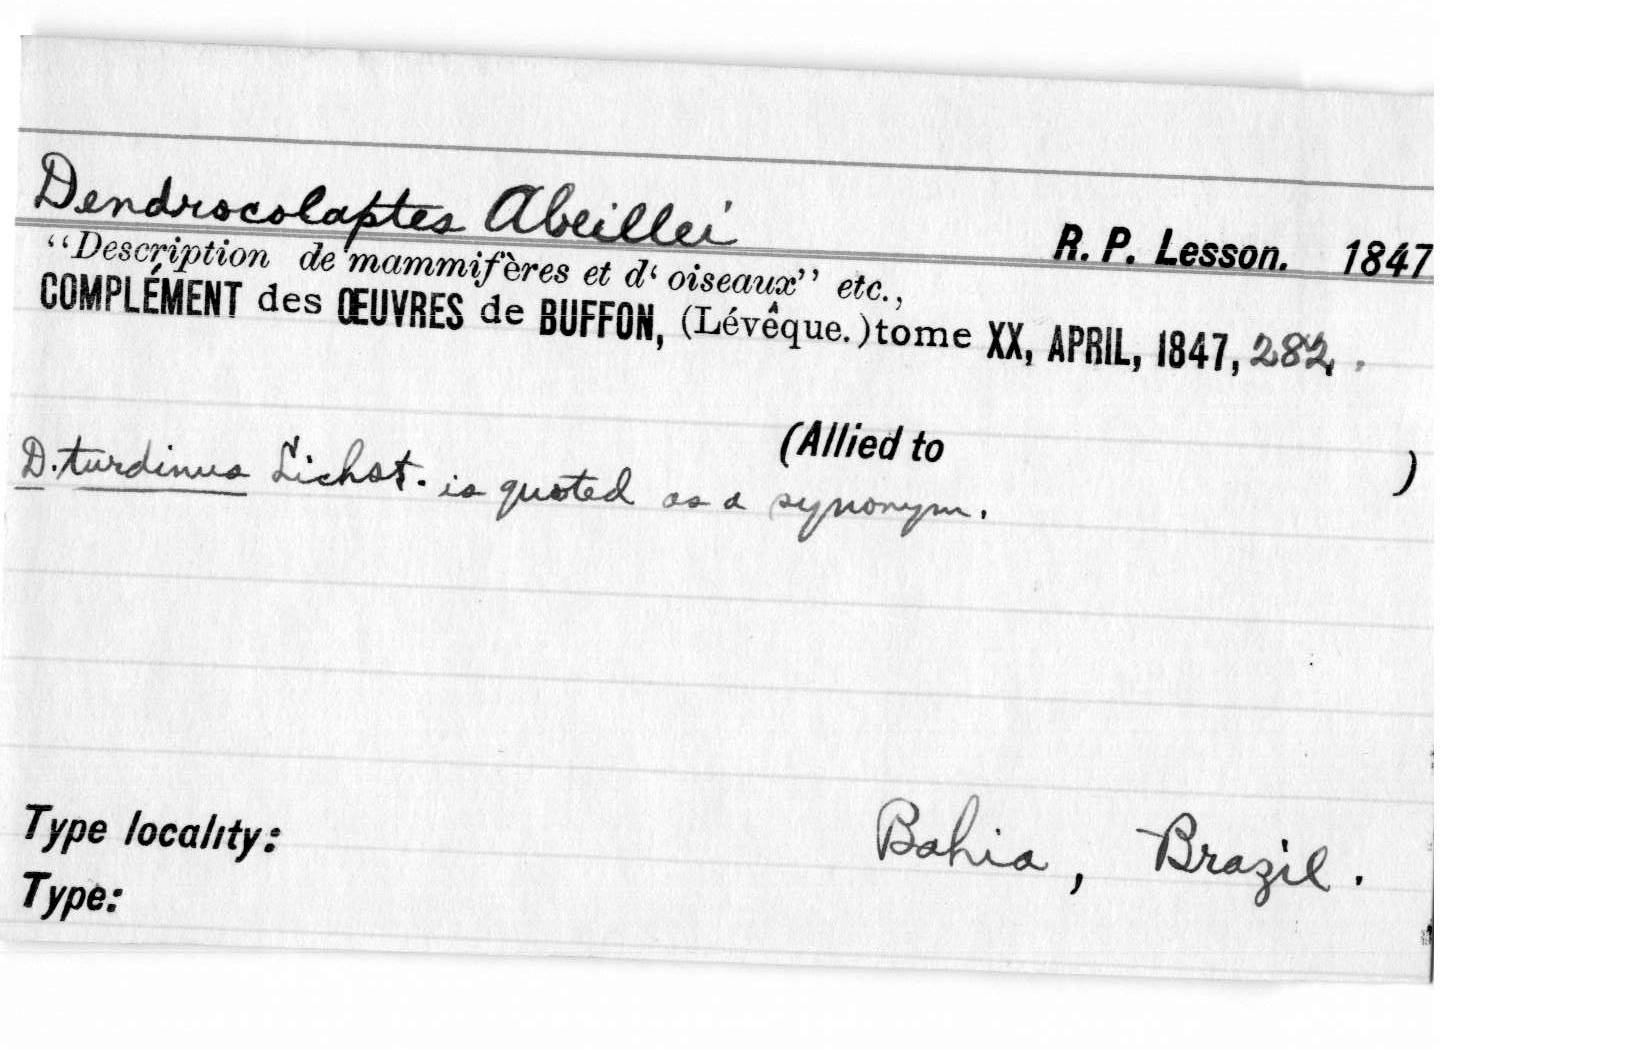 Dendrocolaptes Abeillei R. P. Lesson. 1847
“Description de mammifères et d‘ oiseaux” etc.,
COMPLÉMENT des ŒUVRES de BUFFON, (Lévêque.) tome XX, APRIL, 1847, 282.
(Allied to )
D. turdinus Lichst. is quoted as a synonym.
Type locality: Bahia, Brazil.
Type: